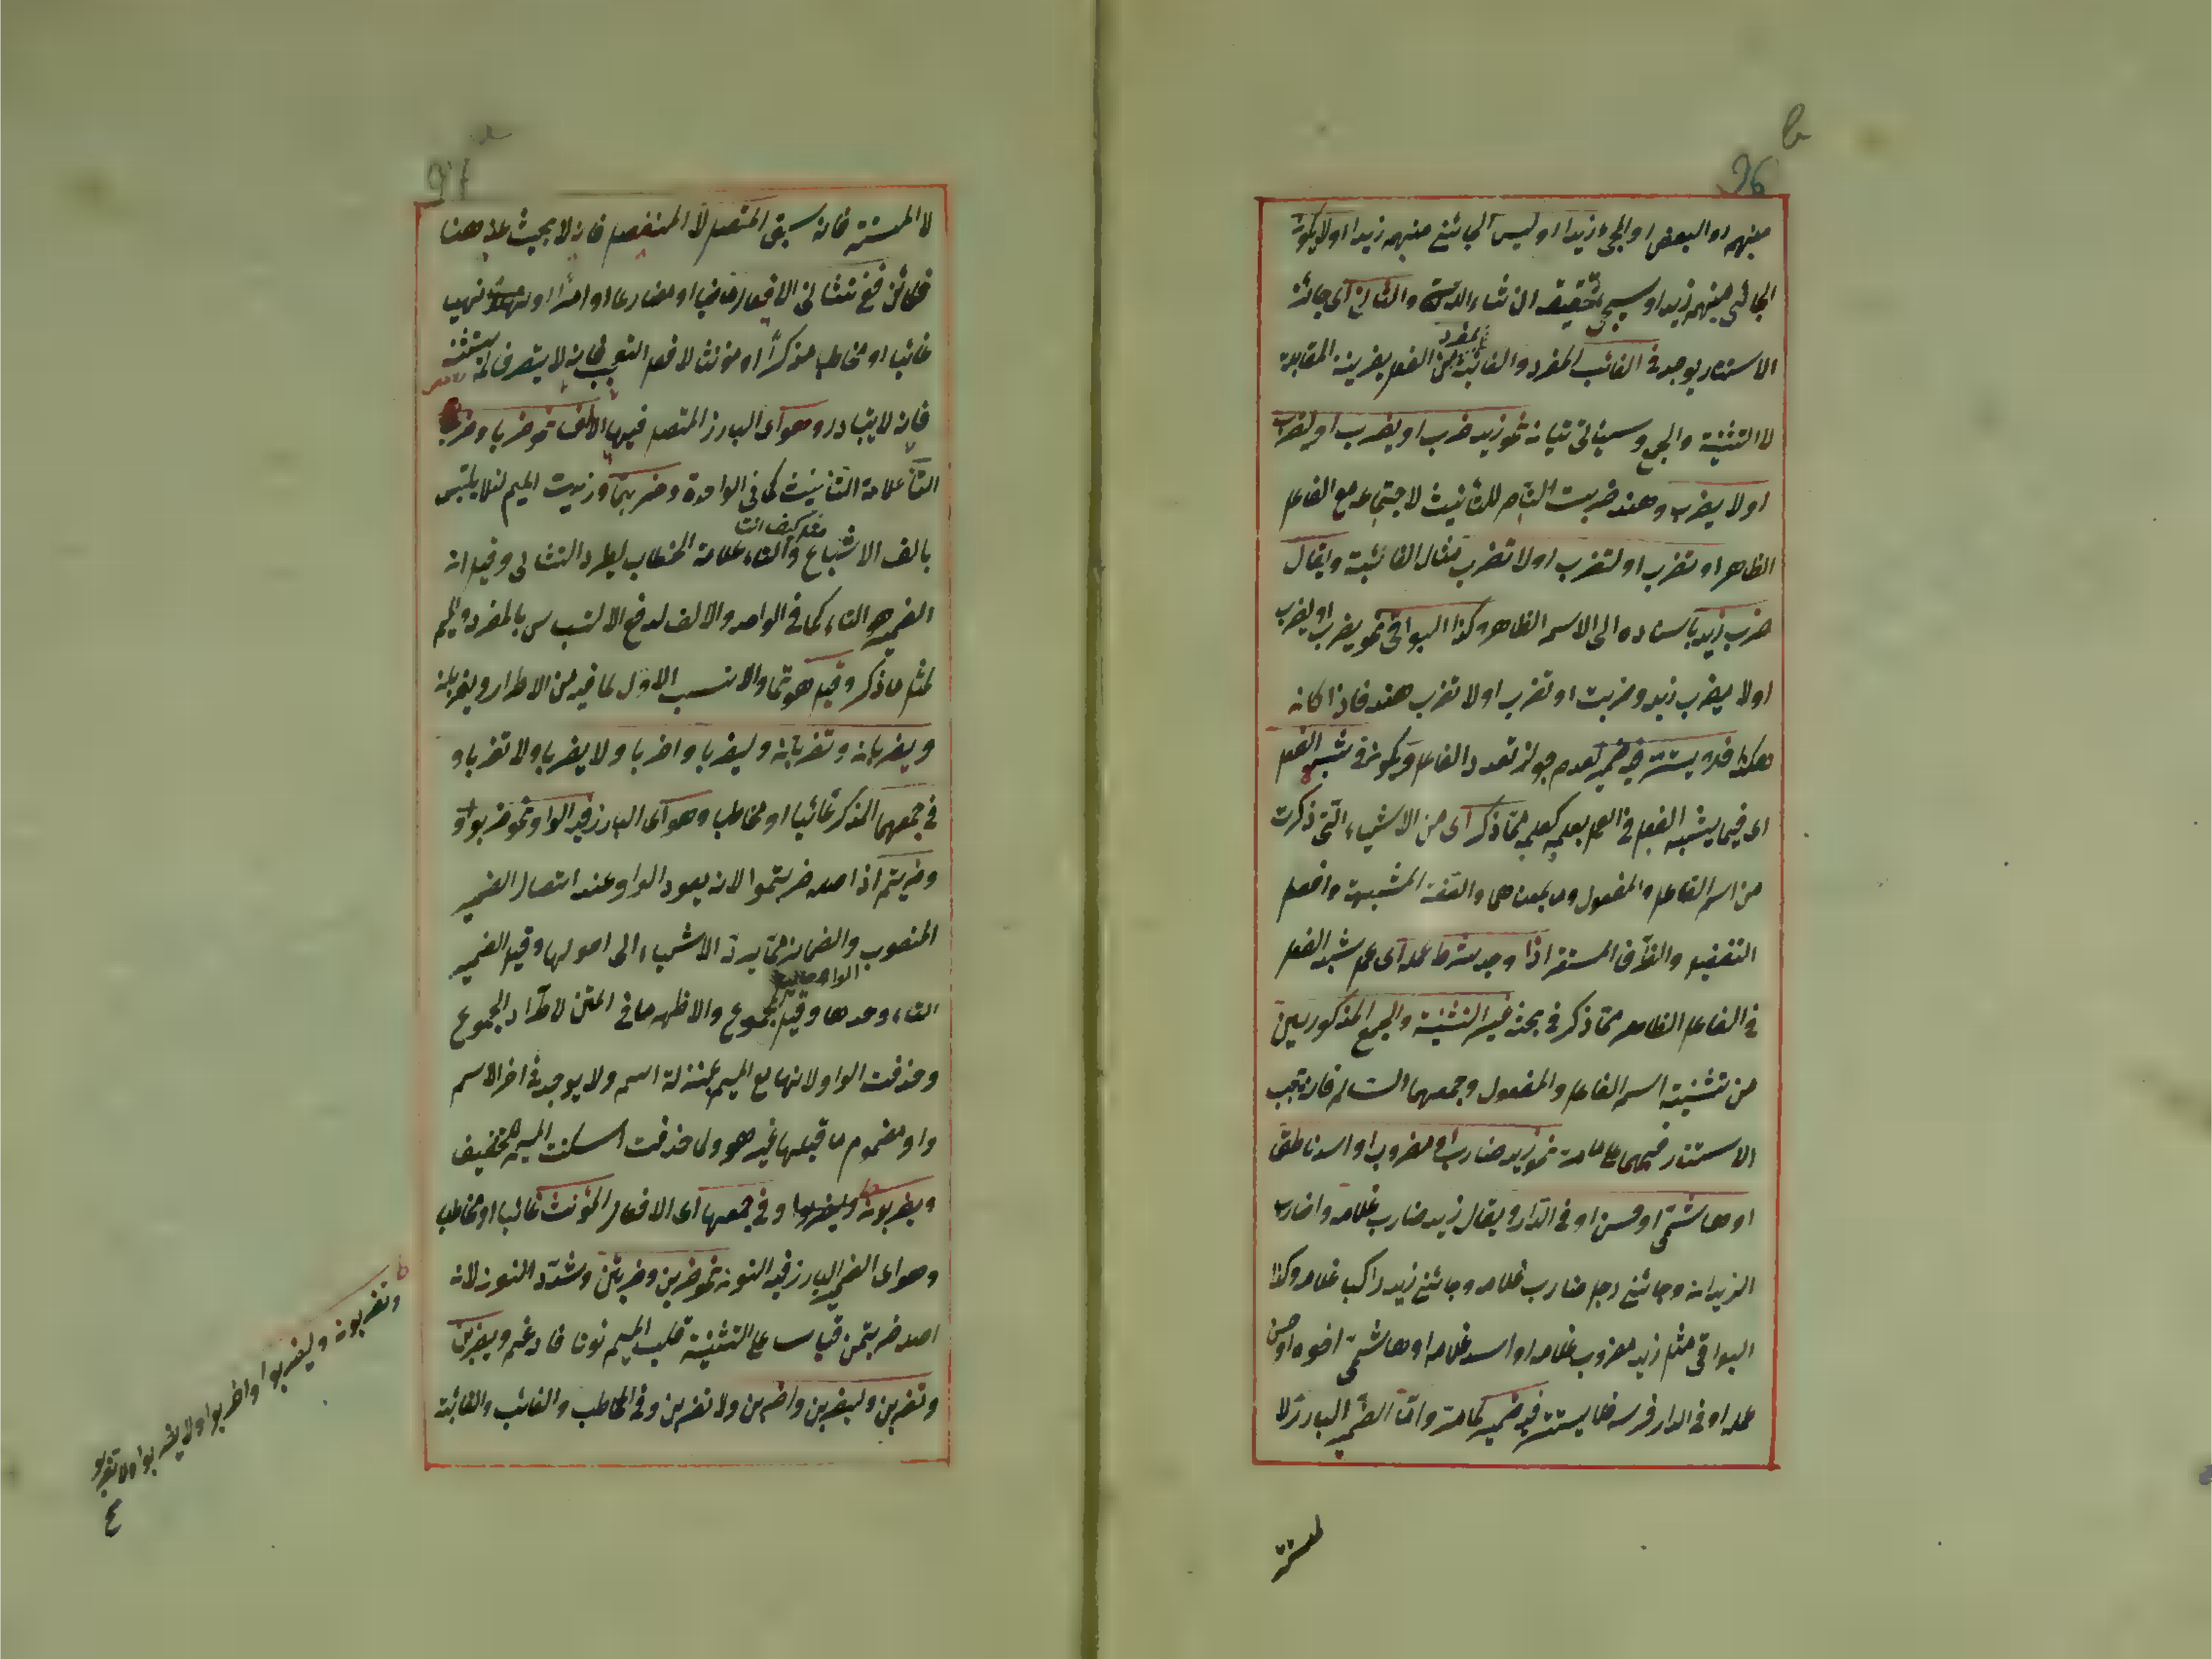 منهم او البعض او المجئ زيدا او ليس الجائنى منهم زيدا او لا يكون
الجائى منهم زيدا وسيجئ تحقيقه ان شاء الله تعالى والثانى اى جائز
الاستتار يوجد فى الغائب المفرد والغائبة المفرد من الفعل بقرينة المقابلة
لا التثنية والجمع وسيأتى بيانه نحو زيد ضرب او يضرب او ليضرب
او لا يضرب وهند ضربت التاء للتأنيث لاجتماعه مع الفاعل
الظاهر او تضرب او لتضرب او لا تضرب مثال الغائبة ويقال
ضرب زيد باسناده الى الاسم الظاهر وكذا البواقى نحو يضرب او ليضرب
او لا يضرب زيد وضربت او تضرب او لا تضرب هند فاذا كانه
هكذا فلا يستتر فيه ضمير لعدم جواز تعدد الفاعل ويكون فى شبه الفعل
اى فيما يشبه الفعل فى العمل يعمل كعمله مما ذكر اى من الاشياء التى ذكرت
من اسم الفاعل والمفعول وما بمعناهما والصفة المشبهة وافعل
التفضيل والظرف المستقر اذا وجد شرط عمله اى عمل شبه الفعل
فى الفاعل الظاهر مما ذكر فى بحثه غير التثنية والجمع المذكورين
من تثنية اسم الفاعل والمفعول وجمعهما السالم فانه يجب
الاستتار فيهما على ما مر نحو زيد ضارب او مضروب او اسد ناطق
او هاشمى او حسن او فى الدار ويقال زيد ضارب غلامه واضارب
الزيدانه وجائنى رجل ضارب غلامه وجائنى زيد راكب غلامه وكذا
البواقى مثل زيد مضروب غلامه او اسد غلامه او هاشمى اخوه او حسن
عمله او فى الدار فرسه فلا يستتر فيه ضمير كما مر واما الضمير البارز لا
لمستتر
لا المستتر فانه سبق المتصل لا المنفصل فانه لا يبحث عنه هنا
غائبا او مخاطبا مذكرا او مؤنثا لا فعل التعجب فانه لا يتصرف
فانه لا يتبادر وهو اى البارز المتصل فيها الالف نحو ضربا وضربتا
التاء علامة التأنيث كما فى الواحدة وضربتما وزيدت الميم لئلا يلتبس
بالف الاشباع والتاء علامة الخطاب ليطرد التثانى وفيه انه
الضمير هو التاء كما فى الواحد والالف لدفع الالتباس بالمفرد والميم
لمثل ما ذكر وقيل هو تما والانسب الاول لما فيه من الاطراد ويضربانه
ويضربانه وتضربانه وليضربا واضربا ولا يضربا ولا تضربا و
فى جمعهما المذكر غائبا او مخاطبا وهو اى البارز فيه الواو نحو ضربوا و
وضربتم اذا اصله ضربتموا لانه يعود الواو عند اتصال الضمير
المنصوب والضمائر مما يرد الاشياء الى اصولها وقيل الضمير
التاء وحدها وقيل المجموع والاظهر ما فى المتن لاطراد الجموع
وحذفت الواو لانها مع الميم بمنزلة اسم ولا يوجد فى اخر الاسم
واو مضموم ما قبلها غير هو ولما حذفت اسكنت الميم للتخفيف
ويضربونه وليضربوا وفى جمعها اى الافعال المؤنث غائبا او مخاطبا
وهو اى الضمير البارز فيه النونه نحو ضربن وضربتن وشدد النون لانه
اصله ضربتمن قياسا على التثنية قلب الميم نونا فادغم ويضربن
وتضربن وليضربن واضربن ولا تضربن وفى المخاطب والغائب والغائبة
وتضربونه وليضربوا واضربوا ولا يضربوا ولا تضربوا